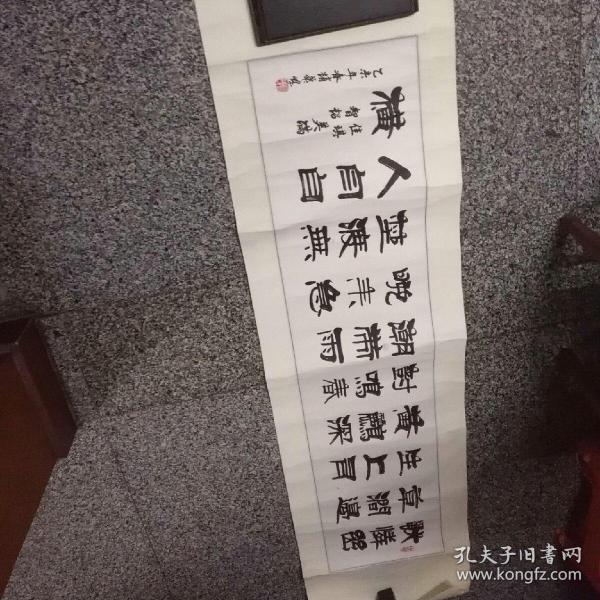 獨憐幽
草澗邊
生上有
黃鸝深
樹鳴春
潮帶雨
晚來急
埜渡無
人舟自
橫
乙未年春
孔夫子旧書网
www.kongfz.com